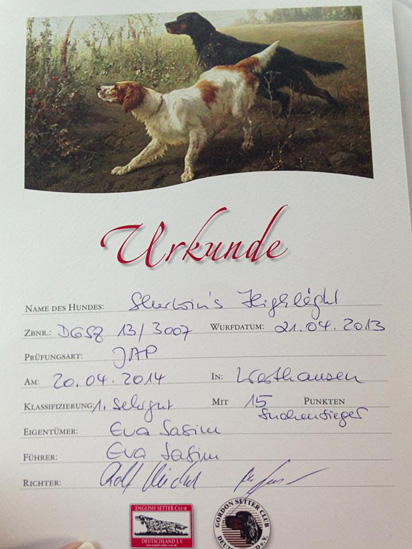 Urkunde
NAME DES HUNDES: Sherwin's Highlight
ZBNR.: DGSZ 13/3007 WURFDATUM: 21.04.2013
PRÜFUNGSART: JAP
AM: 20.04.2014 IN: Westhausen
KLASSIFIZIERUNG: 1. Sehrgut MIT 15 PUNKTEN
Suchensieger
EIGENTÜMER: Eva
FÜHRER: Eva
RICHTER:
ENGLISH SETTER CLUB
DEUTSCHLAND E.V.
GORDON SETTER CLUB